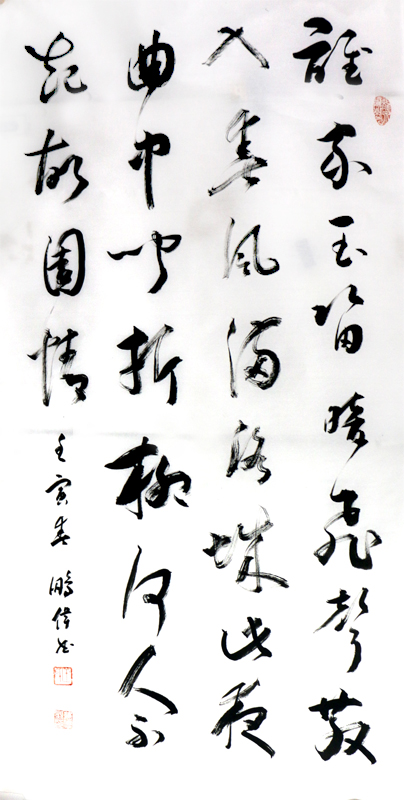 誰家玉笛暗飛聲散
入春風滿洛城此夜
曲中聞折柳何人不
起故園情
壬寅春 鵬偉书